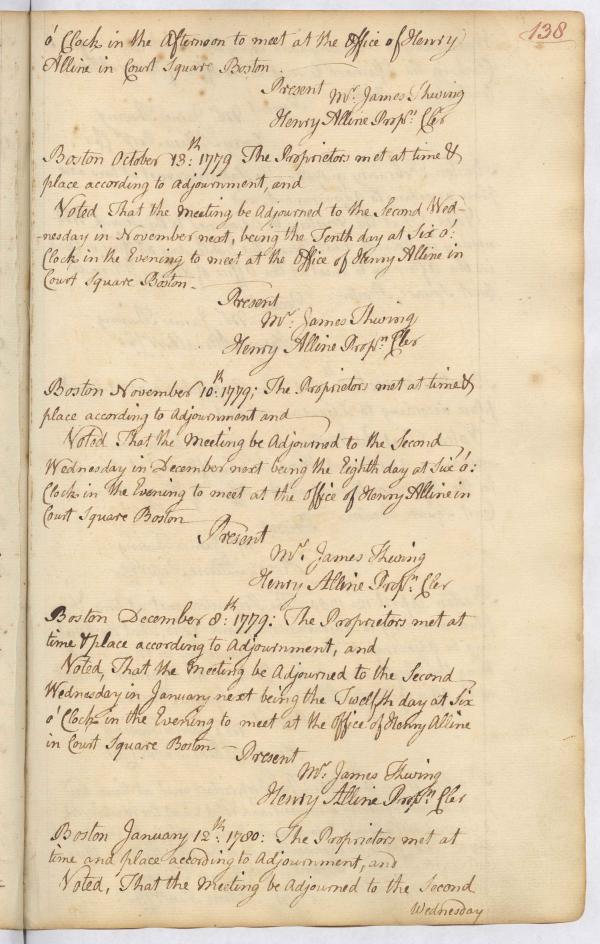 138
o' Clock in the Afternoon to meet at the Office of Henry
Alline in Court Square Boston.
Present Mr. James Thwing
Henry Alline Props. Cler
Boston October 13th: 1779 The Proprietors met at time &
place according to Adjournment, and
Voted That the Meeting be Adjourned to the Second Wed-
-nesday in November next, being the Tenth day at Six o':
Clock in the Evening to meet at the Office of Henry Alline in
Court Square Boston.
Present
Mr. James Thwing
Henry Alline Props. Cler
Boston November 10th: 1779: The Proprietors met at time &
place according to Adjournment and
Voted That the Meeting be Adjourned to the Second
Wednesday in December next being the Eighth day at Six o':
Clock in the Evening to meet at the Office of Henry Alline in
Court Square Boston
Present
Mr. James Thwing
Henry Alline Props. Cler
Boston December 8th: 1779: The Proprietors met at
time & place according to Adjournment, and
Voted, That the Meeting be Adjourned to the Second
Wednesday in January next being the Twelfth day at Six
o' Clock in the Evening to meet at the Office of Henry Alline
in Court Square Boston – Present
Mr. James Thwing
Henry Alline Props. Cler
Boston January 12th: 1780: The Proprietors met at
time and place according to Adjournment, and
Voted, That the Meeting be Adjourned to the Second
Wednesday